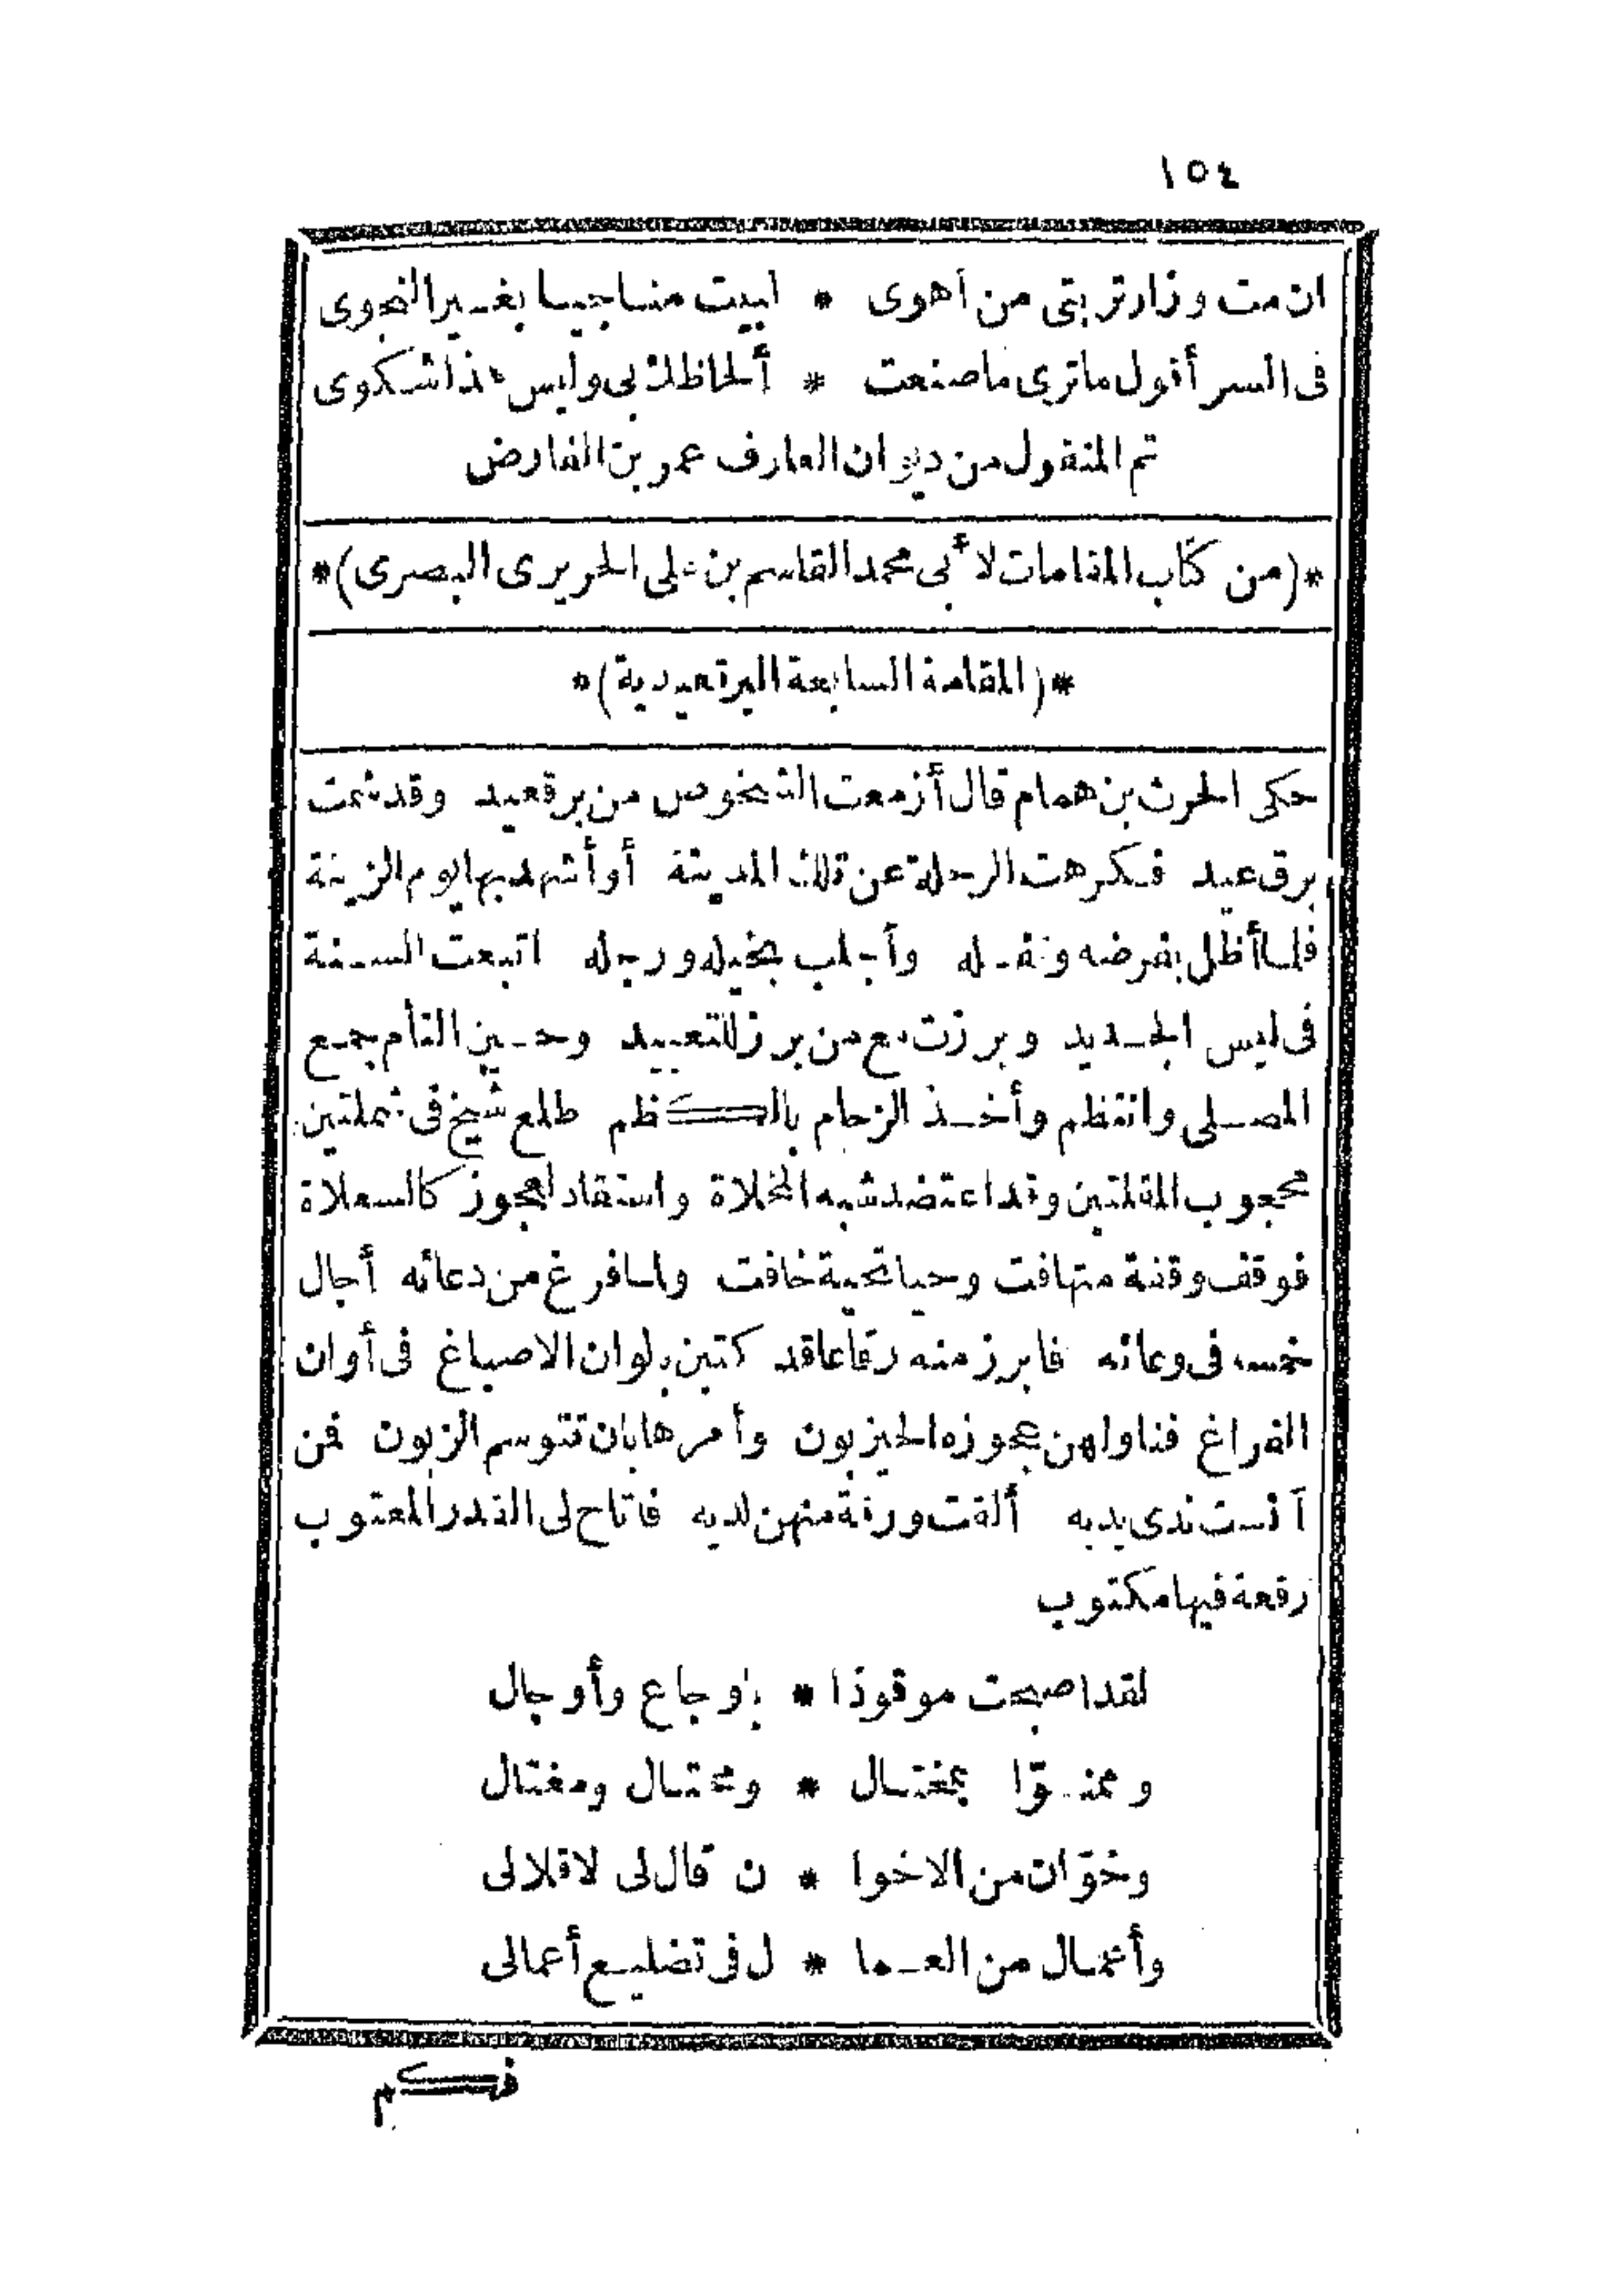 ١٥٤
ان مت وزار تربتى من أهوى * لبيت مناجيا بغير النجوى
فى السر أقول ماترى ماصنعت * ألحاظك بى وليس هذا شكوى
تم المنقول من ديوان العارف عمر بن الفارض
*(من كتاب المقامات لأبى محمد القاسم بن على الحريرى البصرى)*
*(المقامة السابعة البرقعيدية)*
حكى الحرث بن همام قال أزمعت الشخوص من برقعيد وقد شمت
برق عيد فكرهت الرحلة عن تلك المدينة أو أشهد بها يوم الزينة
فلما أظل بفرضه ونفله وأجلب بخيله ورجله اتبعت السنة
فى لبس الجديد وبرزت مع من برز للتعييد وحين التأم جمع
المصلى وانتظم وأخذ الزحام بالكظم طلع شيخ فى شملتين
محجوب المقلتين وقد اعتضد شبه المخلاة واستقاد لعجوز كالسعلاة
فوقف وقفة متهافت وحيا تحية خافت ولما فرغ من دعائه أجال
خمسه فى وعائه فابرز منه رقاعا قد كتبن بلوان الاصباغ فى أوان
الفراغ فناولهن عجوزه الحيزبون وأمرها بان تتوسم الزبون فمن
آنست ندى يديه ألقت ورقة منهن لديه فاتاح لى القدر المعتوب
رقعة فيها مكتوب
لقد اصبحت موقوذا * بأوجاع وأوجال
وممنوّا بمختال * ومحتال ومغتال
وخوّان من الاخوا * ن قال لى لاقلالى
وأعمال من العما * ل فى تضليع أعمالى
فكم